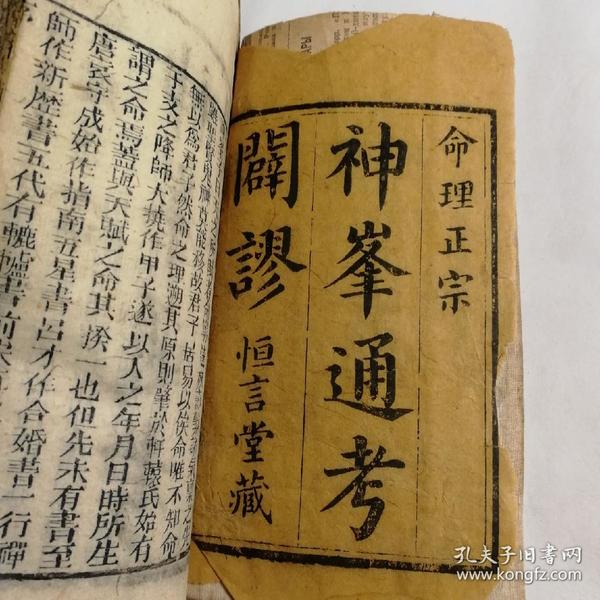 命理正宗
神峯通考
闢謬 恒言堂藏
無以為君子然命之理溯其原則肇於軒轅氏始有
干支之降師大撓作甲子遂以人之年月日時所生
謂之命焉蓋與天賦之命其揆一也但先未有書至
唐袁守成始作指南五星書呂才作合婚書一行禪
師作新曆書五代有轆轤書前
孔夫子旧书网
www.kongfz.com